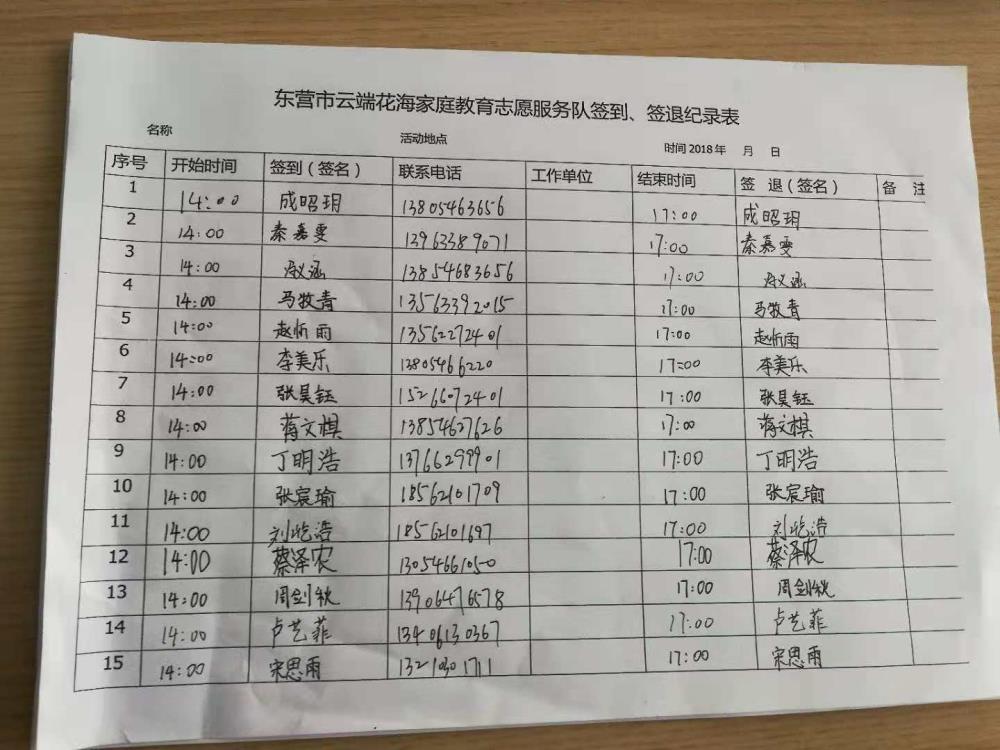 东营市云端花海家庭教育志愿服务队签到、签退纪录表
名称 活动地点 时间 2018 年 月 日
序号 开始时间 签到（签名） 联系电话 工作单位 结束时间 签 退（签名） 备 注
1 14:00 成昭玥 13805463656 17:00 成昭玥
2 14:00 秦嘉雯 13963389071 17:00 秦嘉雯
3 14:00 13854683656 17:00
4 14:00 马牧青 13563392015 17:00 马牧青
5 14:00 赵忻雨 13562272401 17:00 赵忻雨
6 14:00 李美乐 13805466220 17:00 李美乐
7 14:00 张昊钰 15266072401 17:00 张昊钰
8 14:00 蒋文棋 13854627626 17:00 蒋文棋
9 14:00 丁明浩 13766299901 17:00 丁明浩
10 14:00 张宸瑜 18562101709 17:00 张宸瑜
11 14:00 刘屹浩 18562101697 17:00 刘屹浩
12 14:00 蔡泽农 13054661050 17:00 蔡泽农
13 14:00 周剑秋 13906476578 17:00 周剑秋
14 14:00 卢艺菲 13406130367 17:00 卢艺菲
15 14:00 宋思雨 17:00 宋思雨